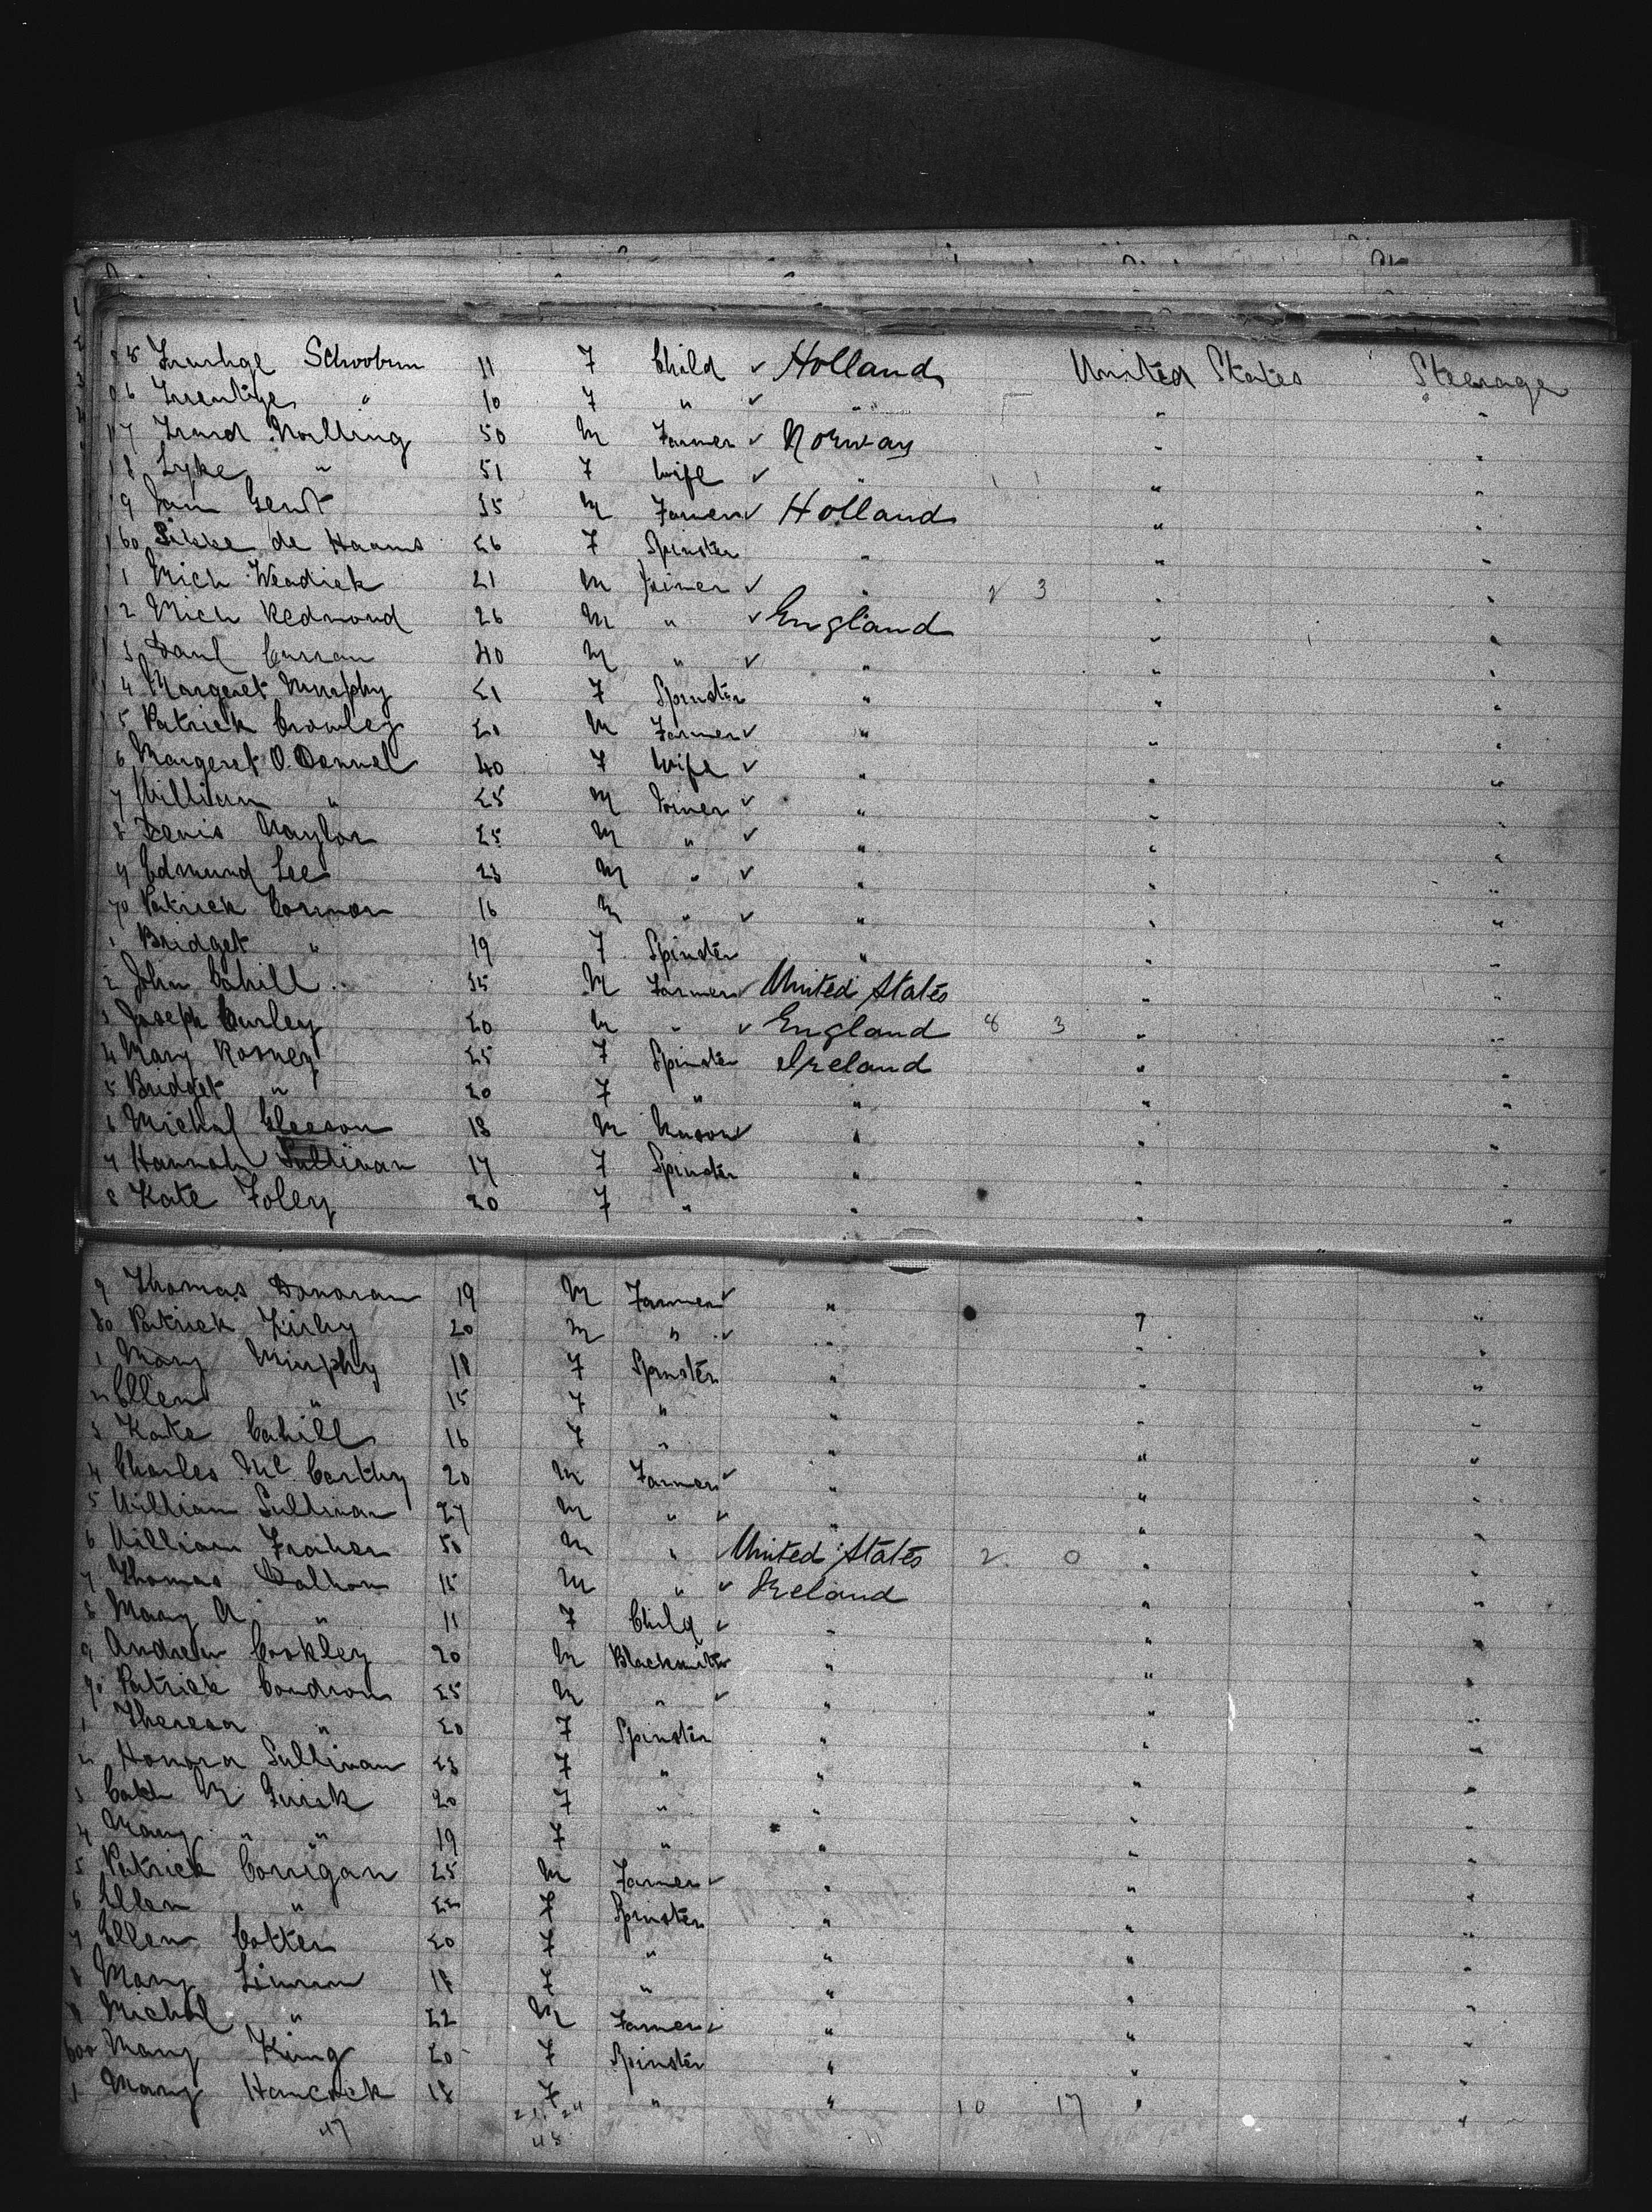 Schoobum 11 F Child ✓ Holland United States Steerage
" 10 F " ✓ " " "
7 Nolling 50 M Farmer ✓ Norway " "
8 Lyke " 51 F Wife ✓ " " "
9 Gendt 35 M Farmer ✓ Holland " "
60 de Haams 26 F Spinster " " "
1 Mich Weadick 21 M Joiner ✓ " 2 3 " "
2 Mich Redmond 26 M " ✓ England " "
3 Curran 40 M " ✓ " " "
4 Margeret Murphy 21 F Spinster " " "
5 Patrick Crowley 20 M Farmer ✓ " " "
6 Margeret O.Donnel 40 F Wife ✓ " " "
7 William " 25 M Joiner ✓ " " "
8 Denis Naylor 25 M " ✓ " " "
9 Edmund Lee 23 M " ✓ " " "
70 Patrick Connor 16 M " ✓ " " "
1 Bridget " 19 F Spinster " " "
2 John Cahill 35 M Farmer ✓ United States " "
3 Joseph Curley 20 M " ✓ England 8 3 " "
4 Mary Rosney 25 F Spinster Ireland " "
5 Bridget " 20 F " " " "
6 Michal Gleeson 18 M Mason ✓ " " "
7 Hannah Sullivan 17 F Spinster " " "
8 Kate Foley 20 F " " " "
9 Thomas Donovan 19 M Farmer ✓ " " "
80 Patrick Kirby 20 M " ✓ " " "
1 Mary Murphy 18 F Spinster " " "
2 Ellen " 15 F " " " "
3 Kate Cahill 16 F " " " "
4 Charles Mc Carthy 20 M Farmer ✓ " " "
5 William Sullivan 27 M " ✓ " " "
6 William Fraher 50 M " ✓ United States 2 0 " "
7 Thomas Dalhon 15 M " ✓ Ireland " "
8 Mary A. " 11 F Child ✓ " " "
9 Andrew Cookley 20 M Blacksmith ✓ " " "
90 Patrick Condron 25 M " ✓ " " "
1 Theresa " 20 F Spinster " " "
2 Honora Sullivan 23 F " " " "
3 Cath Mc Gurk 20 F " " " "
4 Mary " " 19 F " " " "
5 Patrick Corrigan 25 M Farmer ✓ " " "
6 Ellen " 22 F Spinster " " "
7 Ellen Cotter 20 F " " " "
8 Mary 18 F " " " "
9 Michal " 22 M Farmer ✓ " " "
600 Mary King 20 F Spinster " " "
1 Mary Hancock 18 F " " 10 17 " "
47 24
48